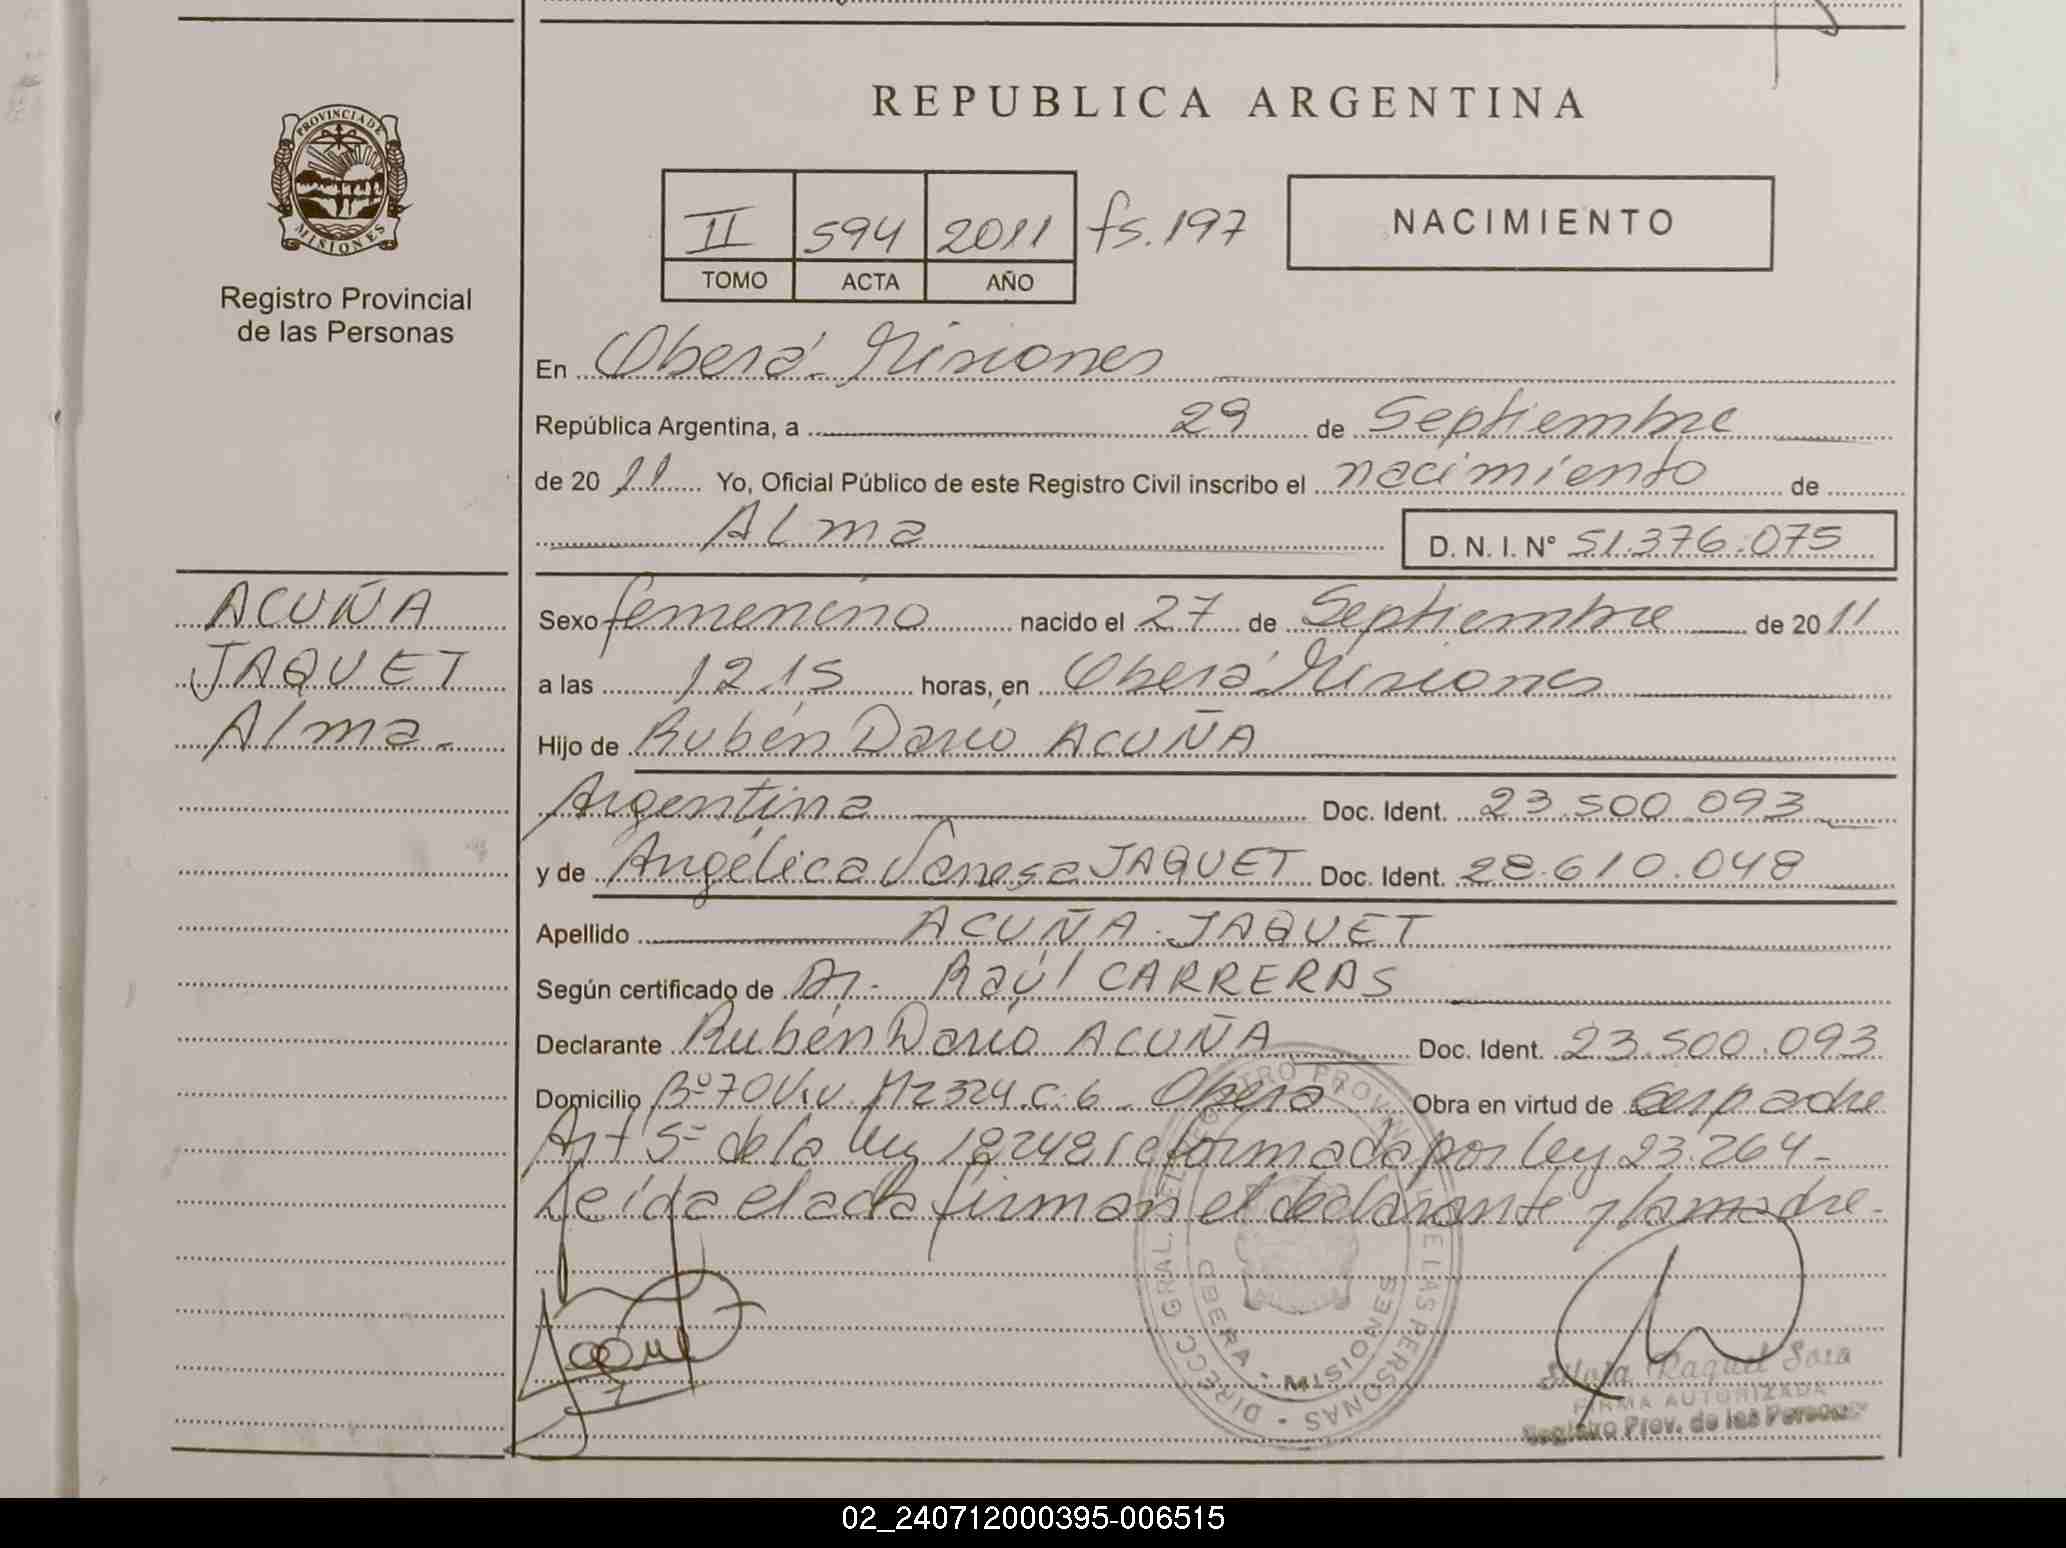 REPUBLICA ARGENTINA
PROVINCIA DE
MISIONES
Registro Provincial
de las Personas
II 594 2011 fs. 197
TOMO ACTA AÑO
NACIMIENTO
En Oberá - Misiones
República Argentina, a 29 de Septiembre
de 20 11 Yo, Oficial Público de este Registro Civil inscribo el nacimiento de
Alma D. N. I. Nº 51.376.075
ACUÑA
JAQUET
Alma.-
Sexo femenino nacido el 27 de Septiembre de 20 11
a las 12.15 horas, en Oberá - Misiones
Hijo de Rubén Darío ACUÑA
Argentina Doc. Ident. 23.500.093
y de Angélica Vanesa JAQUET Doc. Ident. 28.610.048
Apellido ACUÑA - JAQUET
Según certificado de Dr. Raúl CARRERAS
Declarante Rubén Darío ACUÑA Doc. Ident. 23.500.093
Domicilio Bº 70 Viv. Mz 324. C. 6 - Oberá Obra en virtud de ser padre
Art 5º de la ley 18248 reformada por ley 23.264 -
Leída el acta firman el declarante y la madre -
DIRECC. GRAL. DEL REGISTRO PROVINCIAL DE LAS PERSONAS
OBERA - MISIONES
Silvia Raquel Sosa
FIRMA AUTORIZADA
Registro Prov. de las Personas
02_240712000395-006515